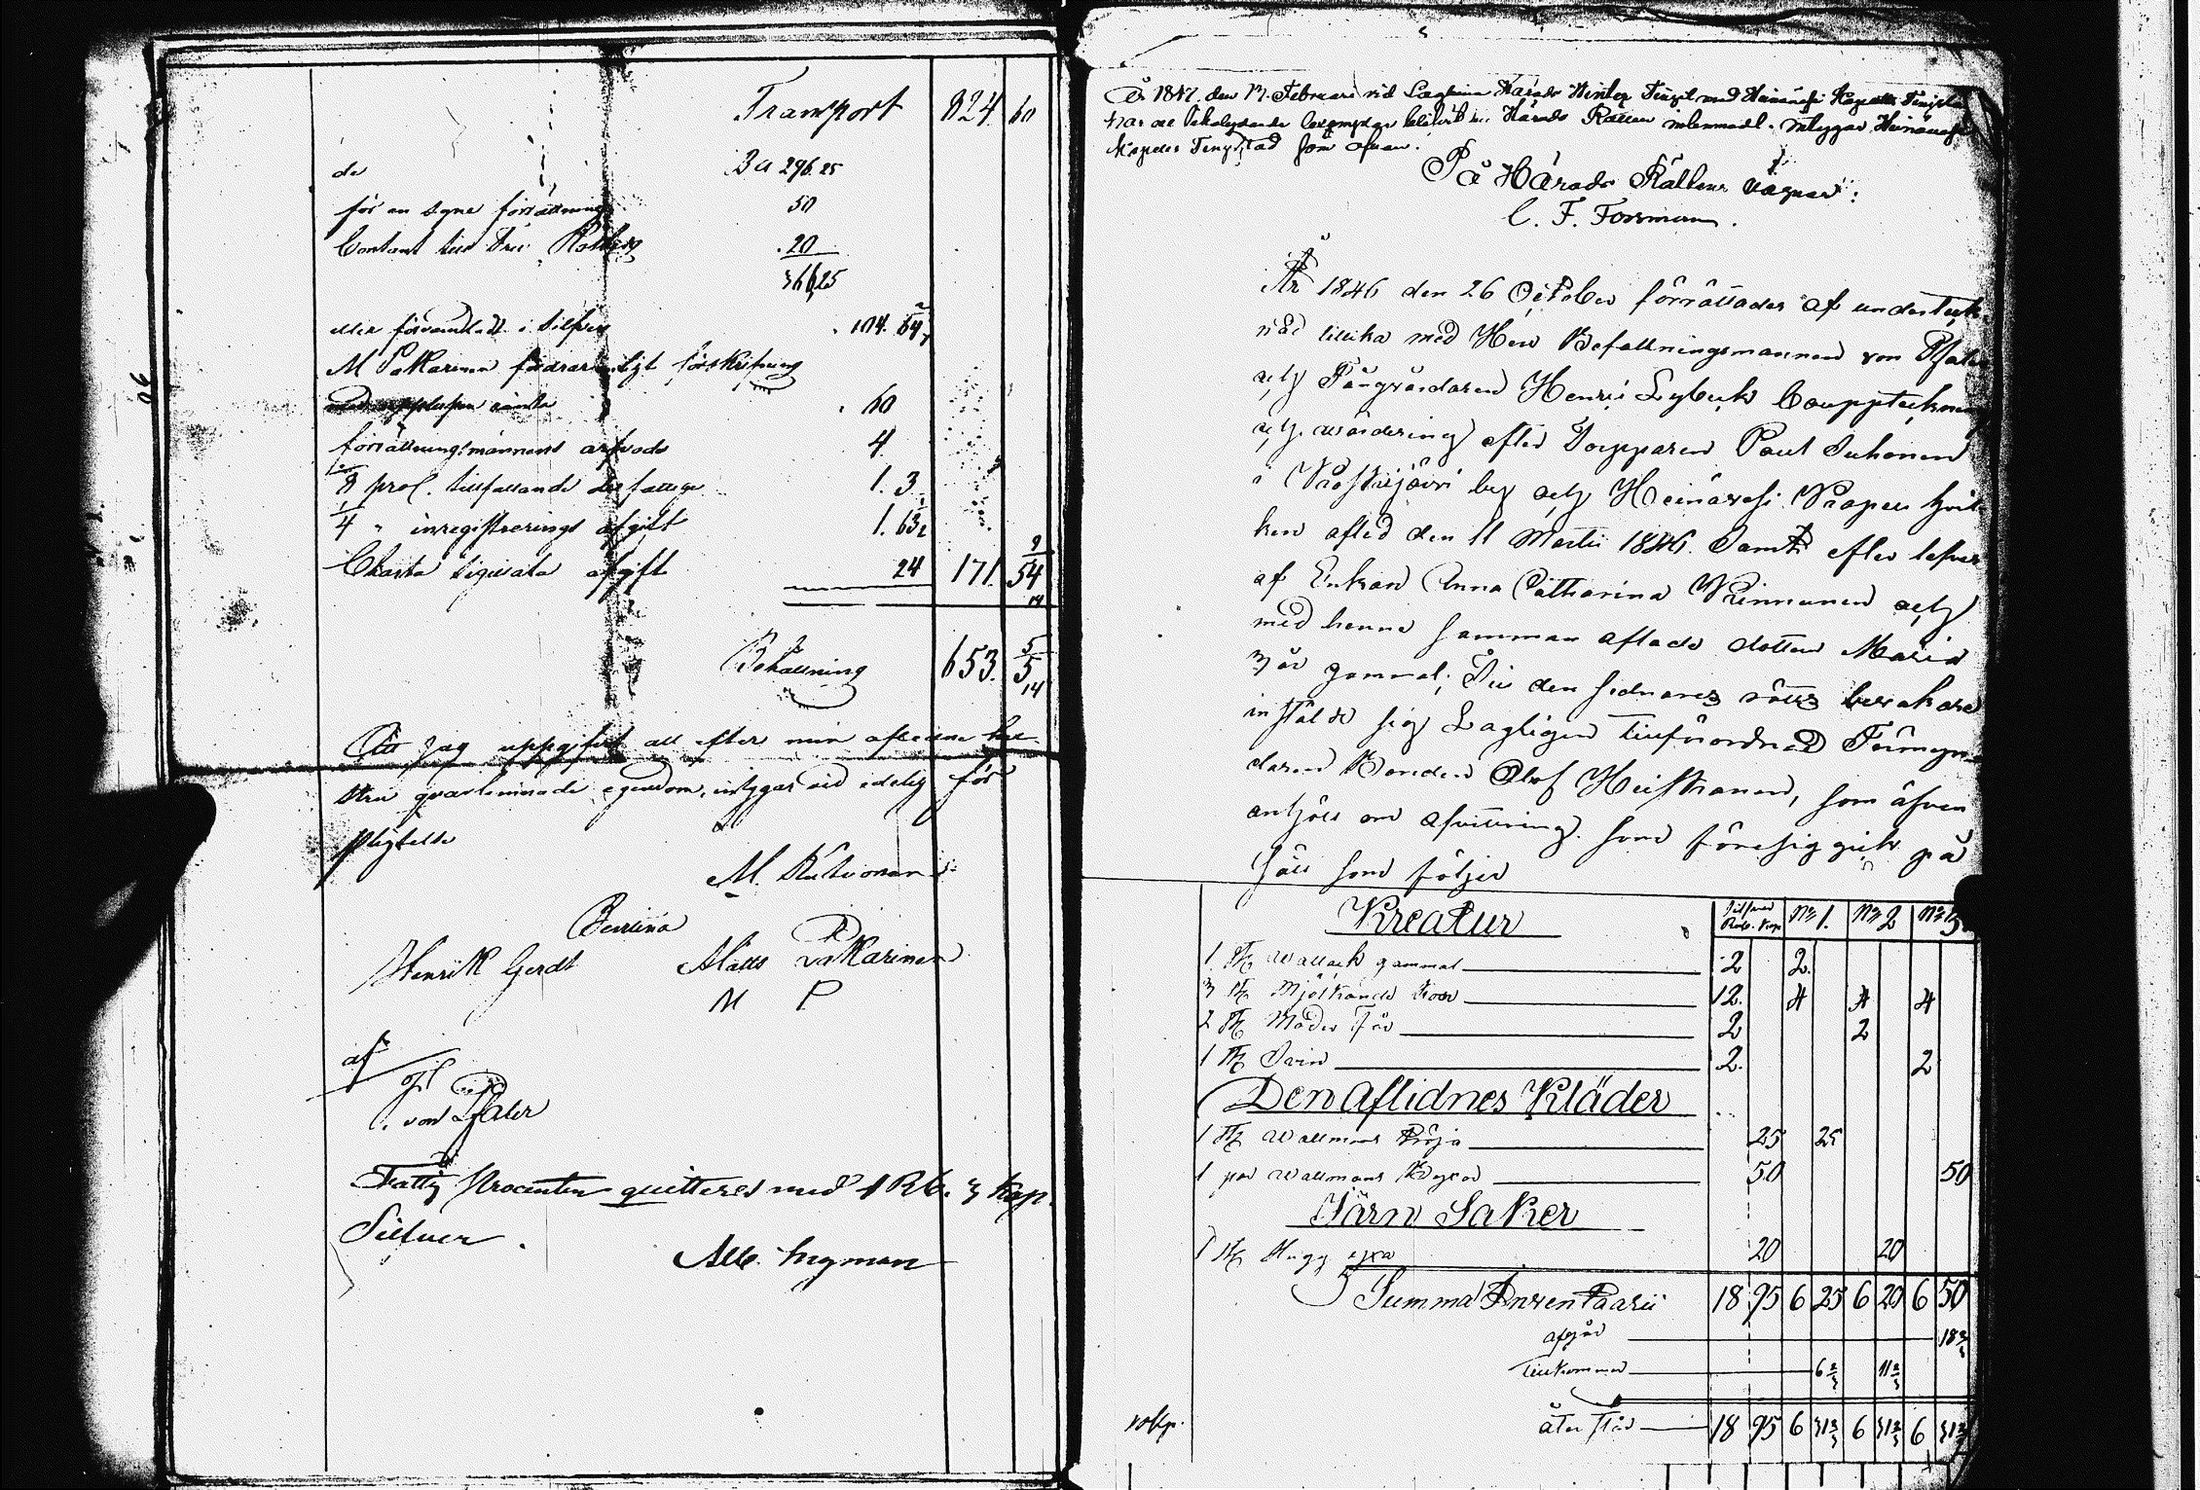 Transport 824. 60
de Ba 296. 25
för en syne förrättning 50
Contant till 20
366,25
eller förvandladt i silfver 104. 64 2/7
M Pakarinen fordrar enligt förskrifning
60
förrättningsmännens arfvode 4.
1/8 proc. tillfallande de fattige 1. 3
1/4 " inregistrerings afgift 1. 63 1/2
Charta Sigillata afgift 24 171. 54 9/14
Behållning 653. 5 5/14
Att jag uppgifvit all efter min aflidne hu-
stru qvarlemnade egendom, intygar vid edelig för
pligtelse
M. Kutvonen
Bevittna
Henrik Gerdt Matts Pakarinen
M P
af
C. von Pfaler
Fattig Procenten quitteres med 1 Rb. 3 Kop.
Silfver.
Alb. Ingman
År 1847 den 17 Februari vid Laglima Härads Vinter Ting med Heinävesi Kapells Tingslag
har ett lika lydande exemplar blifvit till Härads Rätten inlemnadt. intygar Heinävesi
Kapells Tingstad som ofvan.
På Härads Rättens vägnar:
C. F. Forsman.
År 1846 den 26 October förrättades af underteck-
nad tillika med Herr Befallningsmannen von Pfaler
och Fångvårdaren Henric Lybeck bouppteckning
och värdering efter Torpparen Paul Juhonen
i by och Heinävesi Capell hvil-
ken afled den 11 Martii 1846. Samt efter lefver
af Enkan Anna Catharina Kinnunen och
med henne samman aflade dotter Maria
3 år gammal; Till den sednares rätts bevakare
instälde sig Lagligen tillförordnad Förmyn-
daren Bonden Olof Heiskanen, som äfven
anhöll om afvittring som föresiggick på
sätt som följer
Kreatur Silfver Rub. Kop. No 1. No 2 No 3
1 St. Wallack gammal 2 2.
3 St. Mjölkande Kor 12. 4 4 4
2 St. Moder Får 2 2
1 St. Svin 2. 2
Den Aflidnes Kläder
1 St. Wallmans Tröja 25 25
1 par Wallmans Byxor 50 50
Järn Saker
1 St. Hugg yxa 20 20
Summa Inventarii 18 95 6 25 6 20 6 50
afgår 18 1/3
tillkommer 6 2/3 11 2/3
återstår 18 95 6 31 2/3 6 31 2/3 6 31 2/3
10 kp.